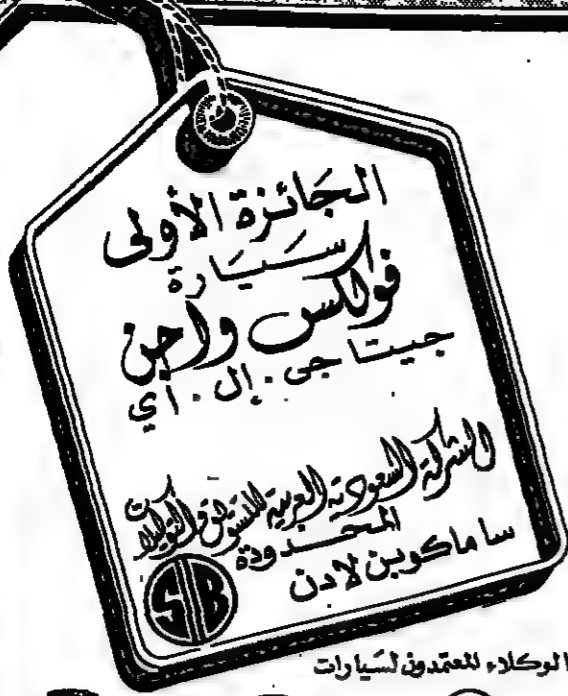 الجائزة الأولى
سيارة
فولكس واجن
جيتا جى . إل . أي
الشركة السعودية العربية للتسويق والتوكيلات
المحدودة
ساماكوبن لادن
SB
الوكلاء المعتمدون لسيارات